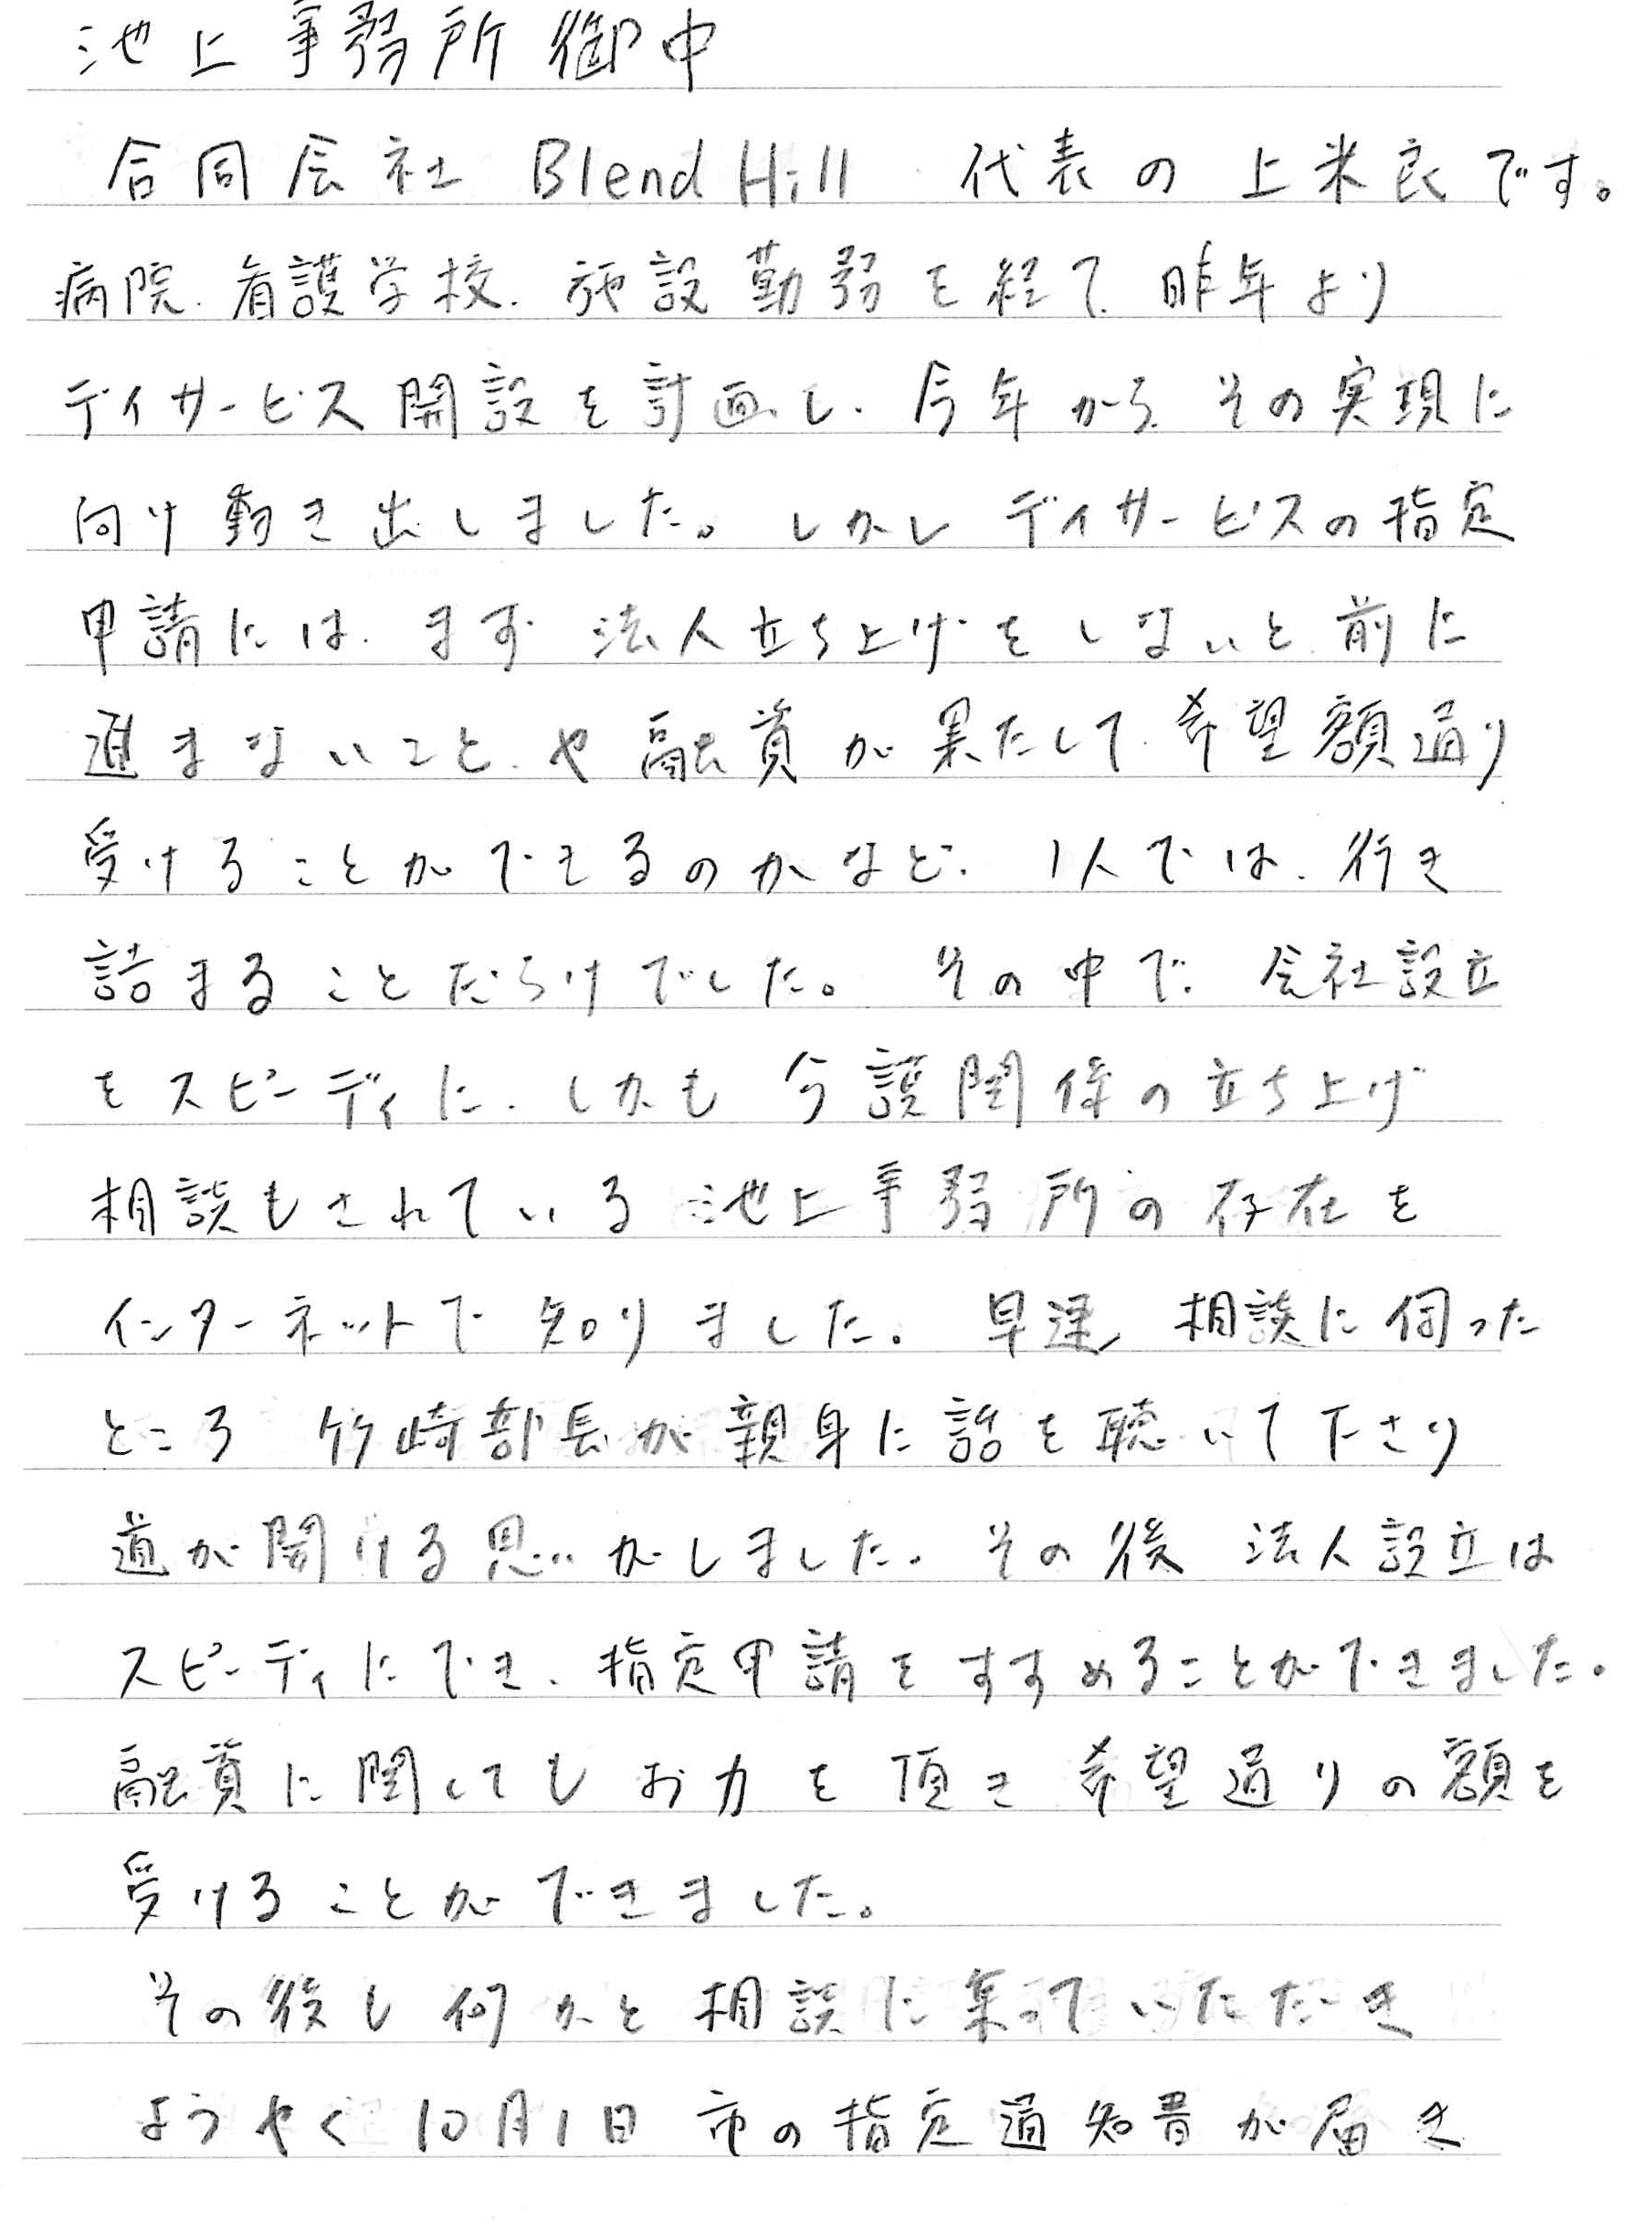 池上事務所御中
合同会社 Blend Hill 代表の上米良です。
病院、看護学校、施設勤務を経て、昨年より
デイサービス開設を計画し、今年から、その実現に
向け動き出しました。しかし デイサービスの指定
申請には、まず 法人立ち上げをしないと、前に
進まないこと、や 融資が果たして、希望額通り
受けることができるのかなど、1人では、行き
詰まることだらけでした。その中で、会社設立
をスピーディに、しかも 介護関係の立ち上げ
相談もされている 池上事務所の存在を
インターネットで 知りました。早速、相談に伺った
ところ 竹崎部長が親身に話を聴いて下さり
道が開ける思いがしました。その後 法人設立は
スピーディにでき、指定申請をすすめることができました。
融資に関してもお力を頂き希望通りの額を
受けることができました。
その後も何かと相談に乗っていただき
ようやく10月1日 市の指定通知書が届き